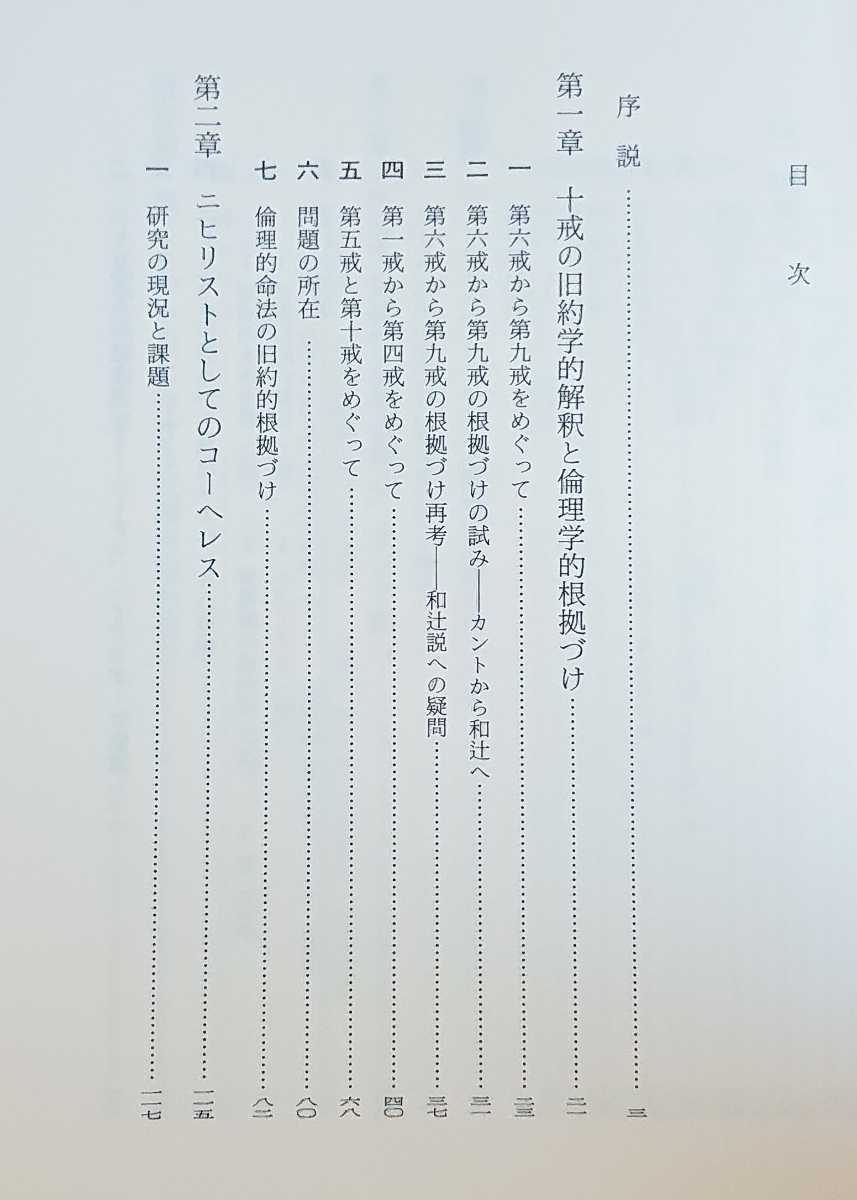 目次
序説……三
第一章 十戒の旧約学的解釈と倫理学的根拠づけ……二一
一 第六戒から第九戒をめぐって……二三
二 第六戒から第九戒の根拠づけの試み――カントから和辻へ……三一
三 第六戒から第九戒の根拠づけ再考――和辻説への疑問……三七
四 第一戒から第四戒をめぐって……四〇
五 第五戒と第十戒をめぐって……六八
六 問題の所在……八〇
七 倫理的命法の旧約的根拠づけ……八二
第二章 ニヒリストとしてのコーヘレス……一一五
一 研究の現況と課題……一一七